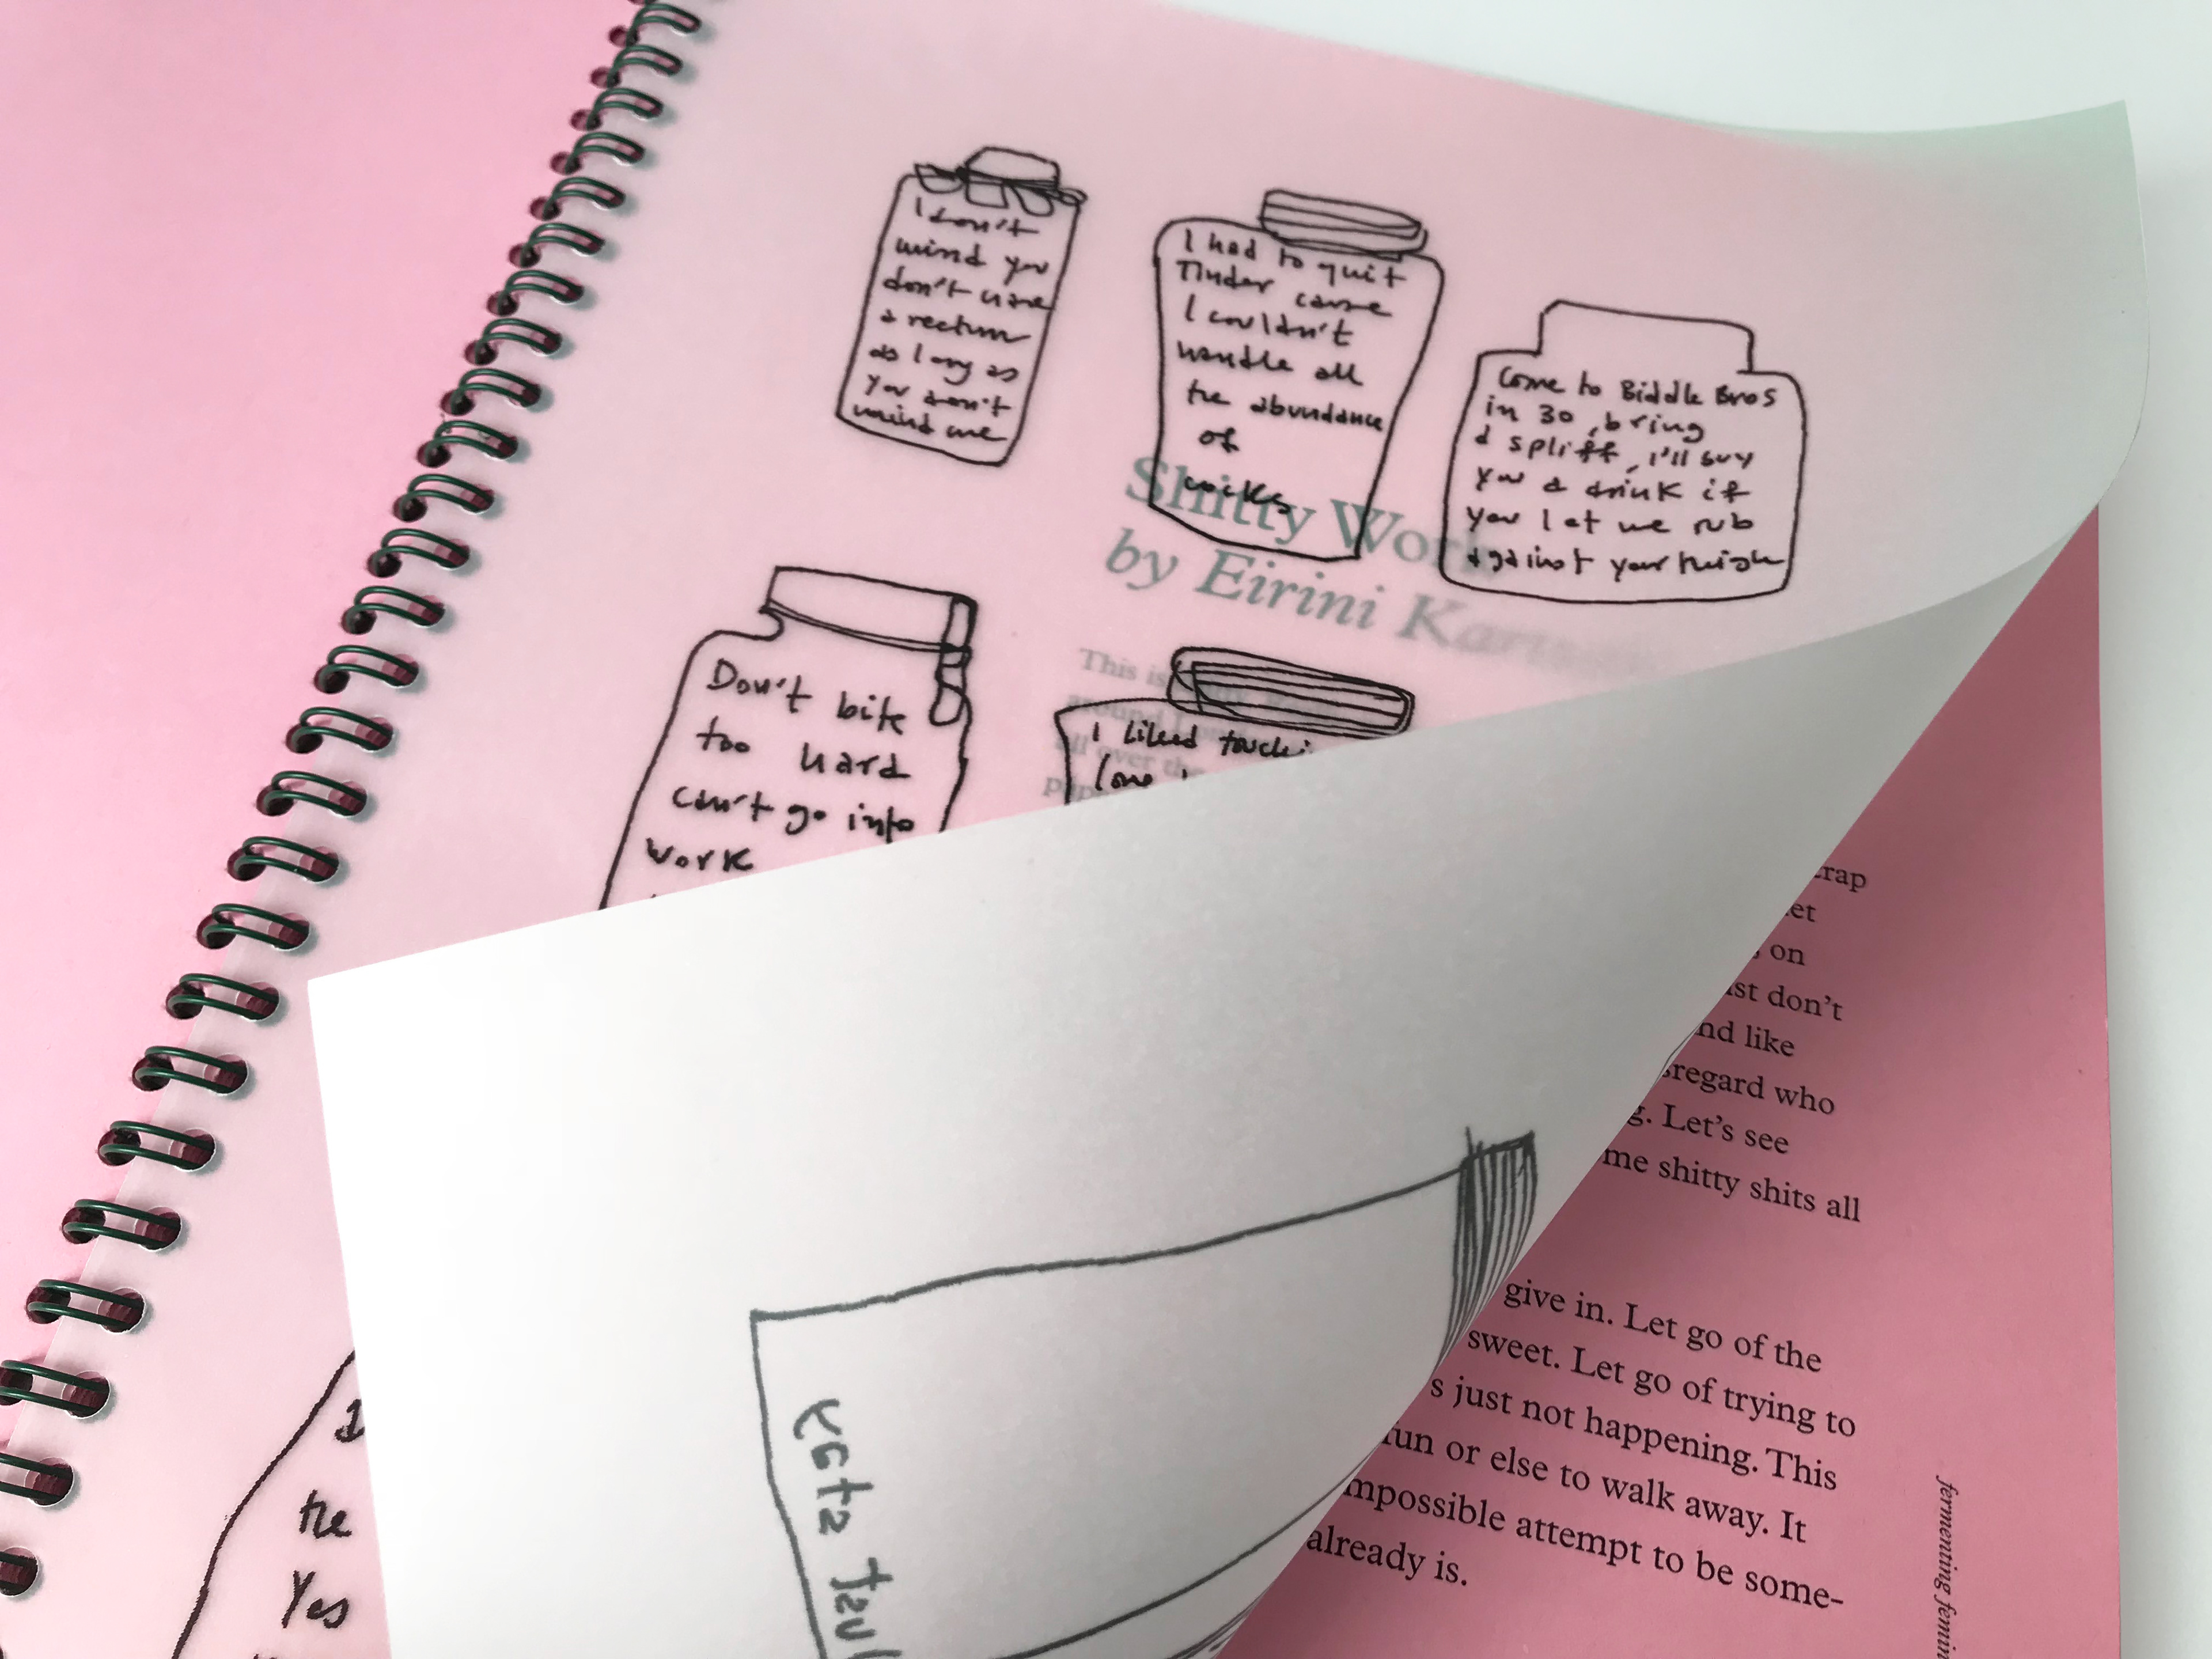 I don't
mind you
don't have
a rectum
as long as
you don't
mind me
I had to quit
Tinder cause
I couldn't
handle all
the abundance
of
cocks
Come to Biddle Bros
in 30, bring
a spliff, I'll buy
you a drink if
you let me rub
against your thigh
Shitty Work
by Eirini
This is
around
all over the
Don't bite
too hard
can't go into
work
I liked
love
the
Yes
stay
just
crap
et
on
st don't
nd like
sregard who
g. Let's see
me shitty shits all
give in. Let go of the
sweet. Let go of trying to
s just not happening. This
fun or else to walk away. It
mpossible attempt to be some-
already is.
fermenting femin